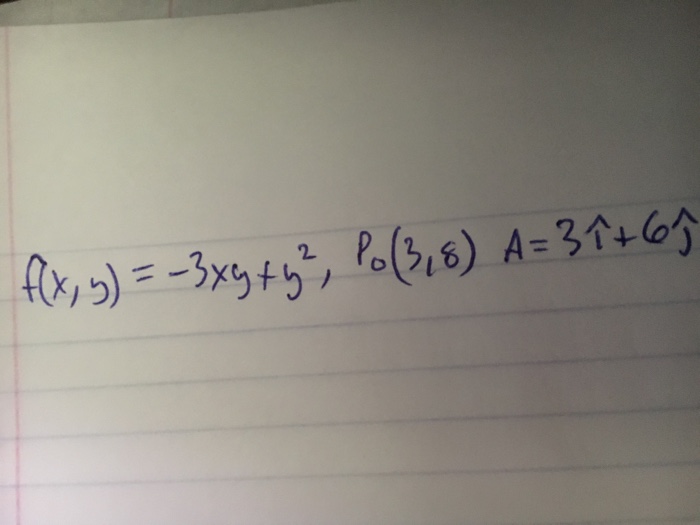 f(x, y) = -3xy + y², P₀(3, 8) A = 3î + 6ĵ